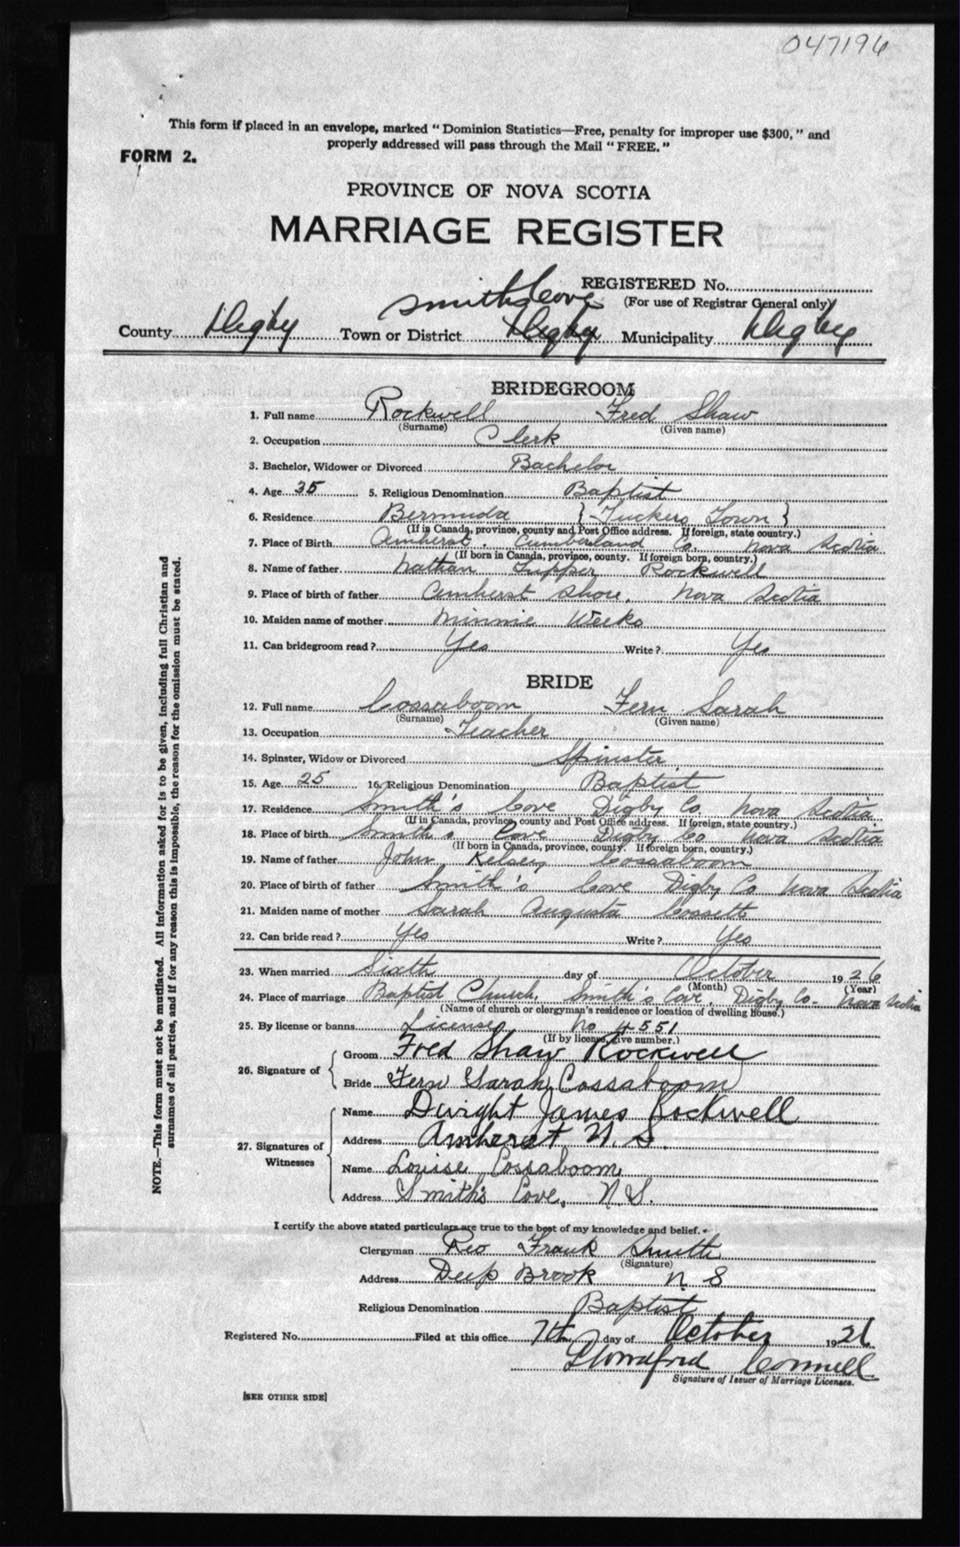 047196
This form if placed in an envelope, marked "Dominion Statistics—Free, penalty for improper use $300," and
properly addressed will pass through the Mail "FREE."
FORM 2.
PROVINCE OF NOVA SCOTIA
MARRIAGE REGISTER
REGISTERED No.
Smiths Cove (For use of Registrar General only)
County Digby Town or District Digby Municipality Digby
BRIDEGROOM
1. Full name Rockwell Fred Shaw
(Surname) (Given name)
2. Occupation Clerk
3. Bachelor, Widower or Divorced Bachelor
4. Age 35 5. Religious Denomination Baptist
6. Residence Bermuda { Tuckers Town }
(If in Canada, province, county and Post Office address. If foreign, state country.)
7. Place of Birth Amherst, Cumberland Co. Nova Scotia
(If born in Canada, province, county. If foreign born, country.)
8. Name of father Nathan Tupper Rockwell
9. Place of birth of father Amherst Shore, Nova Scotia
10. Maiden name of mother Minnie Weeks
11. Can bridegroom read? Yes Write? Yes
BRIDE
12. Full name Cossaboom Fern Sarah
(Surname) (Given name)
13. Occupation Teacher
14. Spinster, Widow or Divorced Spinster
15. Age 25 16. Religious Denomination Baptist
17. Residence Smith's Cove Digby Co. Nova Scotia
(If in Canada, province, county and Post Office address. If foreign, state country.)
18. Place of birth Smith's Cove Digby Co Nova Scotia
(If born in Canada, province, county. If foreign born, country.)
19. Name of father John Kelsey Cossaboom
20. Place of birth of father Smith's Cove Digby Co Nova Scotia
21. Maiden name of mother Sarah Augusta Cossett
22. Can bride read? Yes Write? Yes
23. When married Sixth day of October 1926
(Month) (Year)
24. Place of marriage Baptist Church, Smith's Cove, Digby Co. Nova Scotia
(Name of church or clergyman's residence or location of dwelling house.)
25. By license or banns License No 4551
(If by license, give number.)
26. Signature of { Groom Fred Shaw Rockwell
Bride Fern Sarah Cossaboom
27. Signatures of Witnesses { Name Dwight James Rockwell
Address Amherst N S.
Name Louise Cossaboom
Address Smith's Cove, N.S.
I certify the above stated particulars are true to the best of my knowledge and belief.
Clergyman Rev Frank Smith
(Signature)
Address Deep Brook N. S
Religious Denomination Baptist
Registered No. Filed at this office 7th day of October 1926
Connell
Signature of Issuer of Marriage Licenses.
[SEE OTHER SIDE]
NOTE.—This form must not be mutilated. All information asked for is to be given, including full Christian and
surnames of all parties, and if for any reason this is impossible, the reason for the omission must be stated.